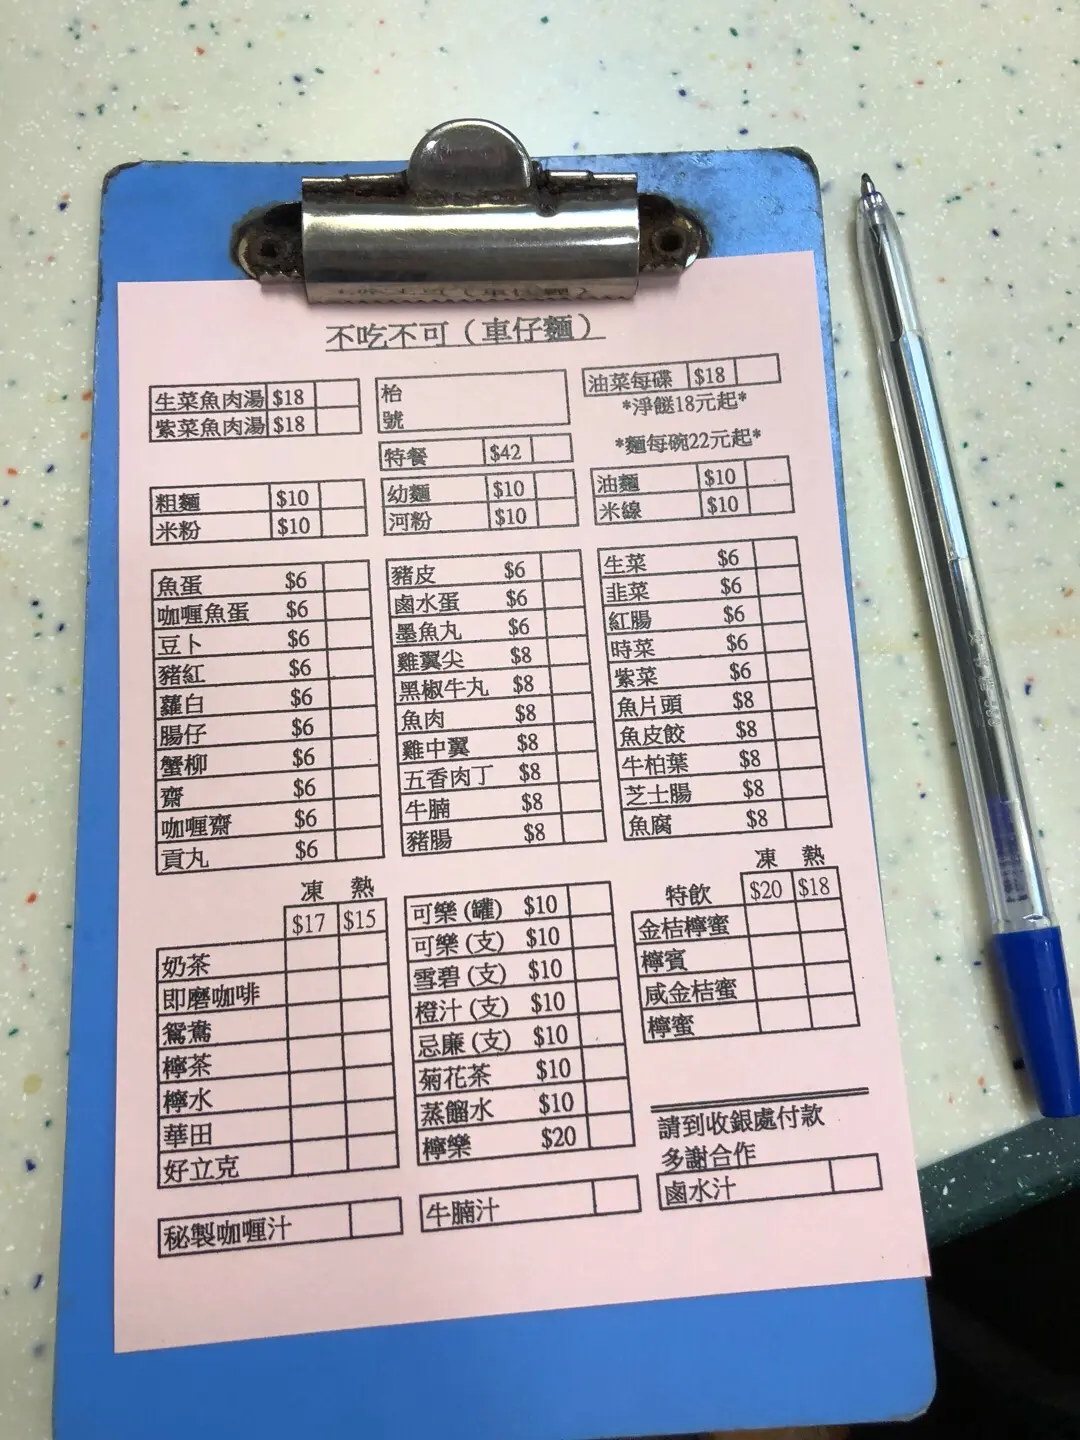 不吃不可（車仔麵）
生菜魚肉湯 $18
紫菜魚肉湯 $18
枱
號
油菜每碟 $18
*淨餸18元起*
特餐 $42
*麵每碗22元起*
粗麵 $10
米粉 $10
幼麵 $10
河粉 $10
油麵 $10
米線 $10
魚蛋 $6
咖喱魚蛋 $6
豆卜 $6
豬紅 $6
蘿白 $6
腸仔 $6
蟹柳 $6
齋 $6
咖喱齋 $6
貢丸 $6
豬皮 $6
鹵水蛋 $6
墨魚丸 $6
雞翼尖 $8
黑椒牛丸 $8
魚肉 $8
雞中翼 $8
五香肉丁 $8
牛腩 $8
豬腸 $8
生菜 $6
韭菜 $6
紅腸 $6
時菜 $6
紫菜 $6
魚片頭 $8
魚皮餃 $8
牛柏葉 $8
芝士腸 $8
魚腐 $8
凍 熱
$17 $15
奶茶
即磨咖啡
鴛鴦
檸茶
檸水
華田
好立克
可樂(罐) $10
可樂(支) $10
雪碧(支) $10
橙汁(支) $10
忌廉(支) $10
菊花茶 $10
蒸餾水 $10
檸樂 $20
凍 熱
特飲 $20 $18
金桔檸蜜
檸賓
咸金桔蜜
檸蜜
請到收銀處付款
多謝合作
秘製咖喱汁
牛腩汁
鹵水汁